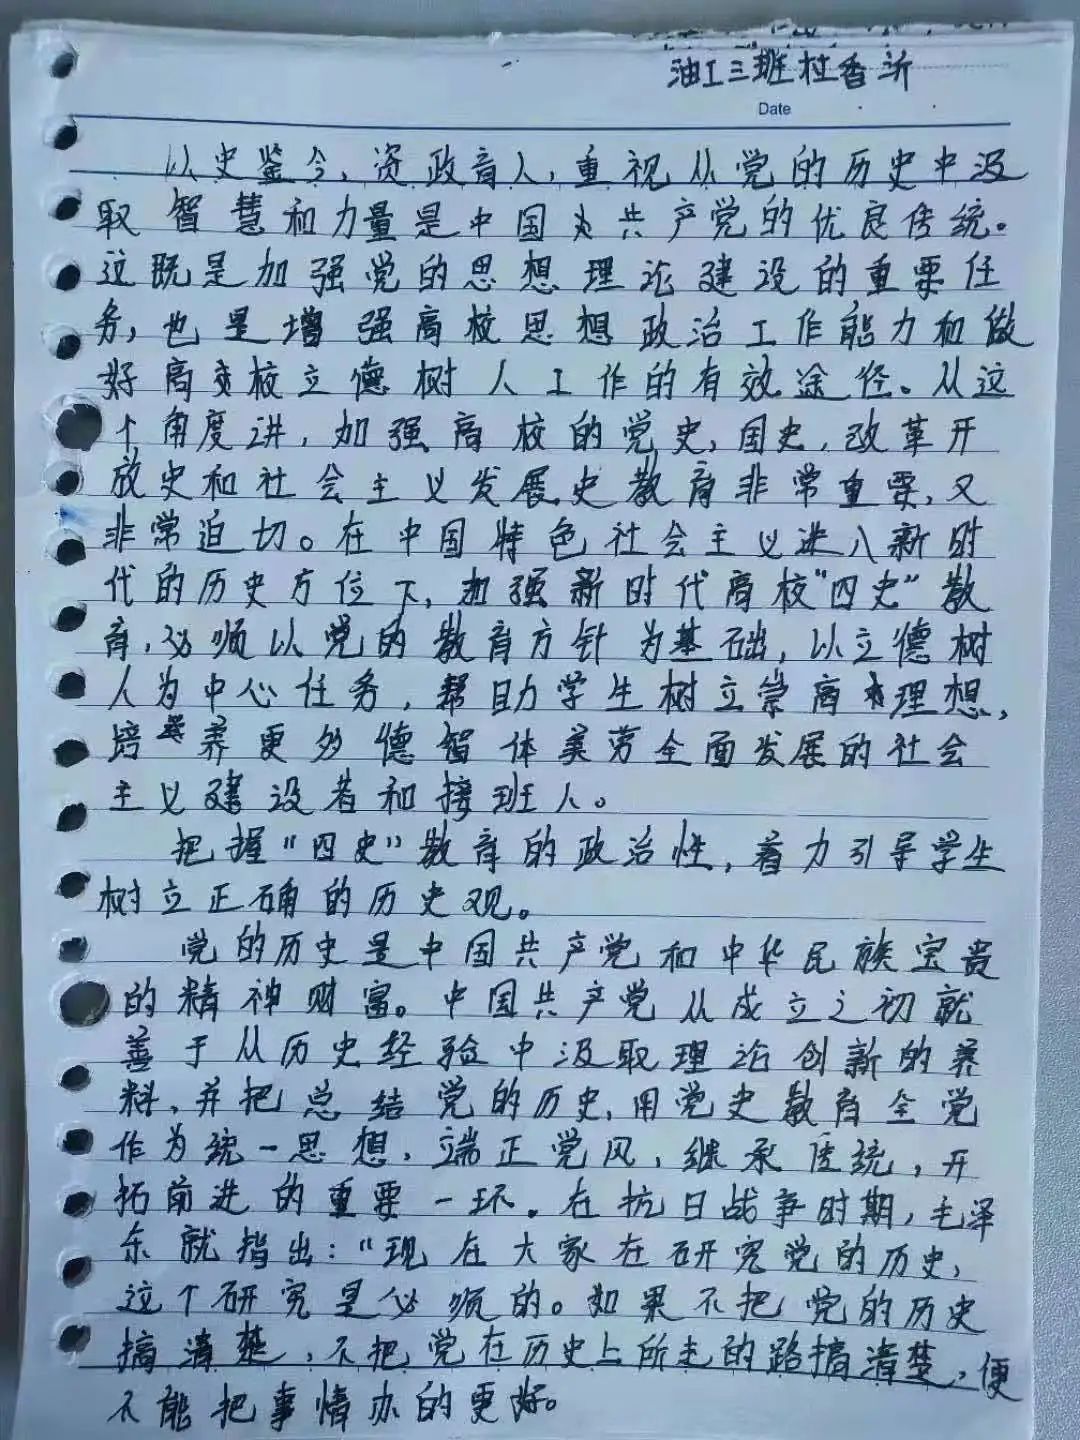 油工三班杜香沂
Date
以史鉴今、资政育人,重视从党的历史中汲
取智慧和力量是中国共产党的优良传统。
这既是加强党的思想理论建设的重要任
务,也是增强高校思想政治工作能力和做
好高校立德树人工作的有效途径。从这
个角度讲,加强高校的党史、国史、改革开
放史和社会主义发展史教育非常重要,又
非常迫切。在中国特色社会主义进入新时
代的历史方位下,加强新时代高校“四史”教
育,必须以党的教育方针为基础,以立德树
人为中心任务,帮助学生树立崇高理想,
培养更多德智体美劳全面发展的社会
主义建设者和接班人。
把握“四史”教育的政治性,着力引导学生
树立正确的历史观。
党的历史是中国共产党和中华民族宝贵
的精神财富。中国共产党从成立之初就
善于从历史经验中汲取理论创新的养
料,并把总结党的历史、用党史教育全党
作为统一思想、端正党风、继承传统,开
拓前进的重要一环。在抗日战争时期,毛泽
东就指出:“现在大家在研究党的历史,
这个研究是必须的。如果不把党的历史
搞清楚,不把党在历史上所走的路搞清楚,便
不能把事情办的更好。